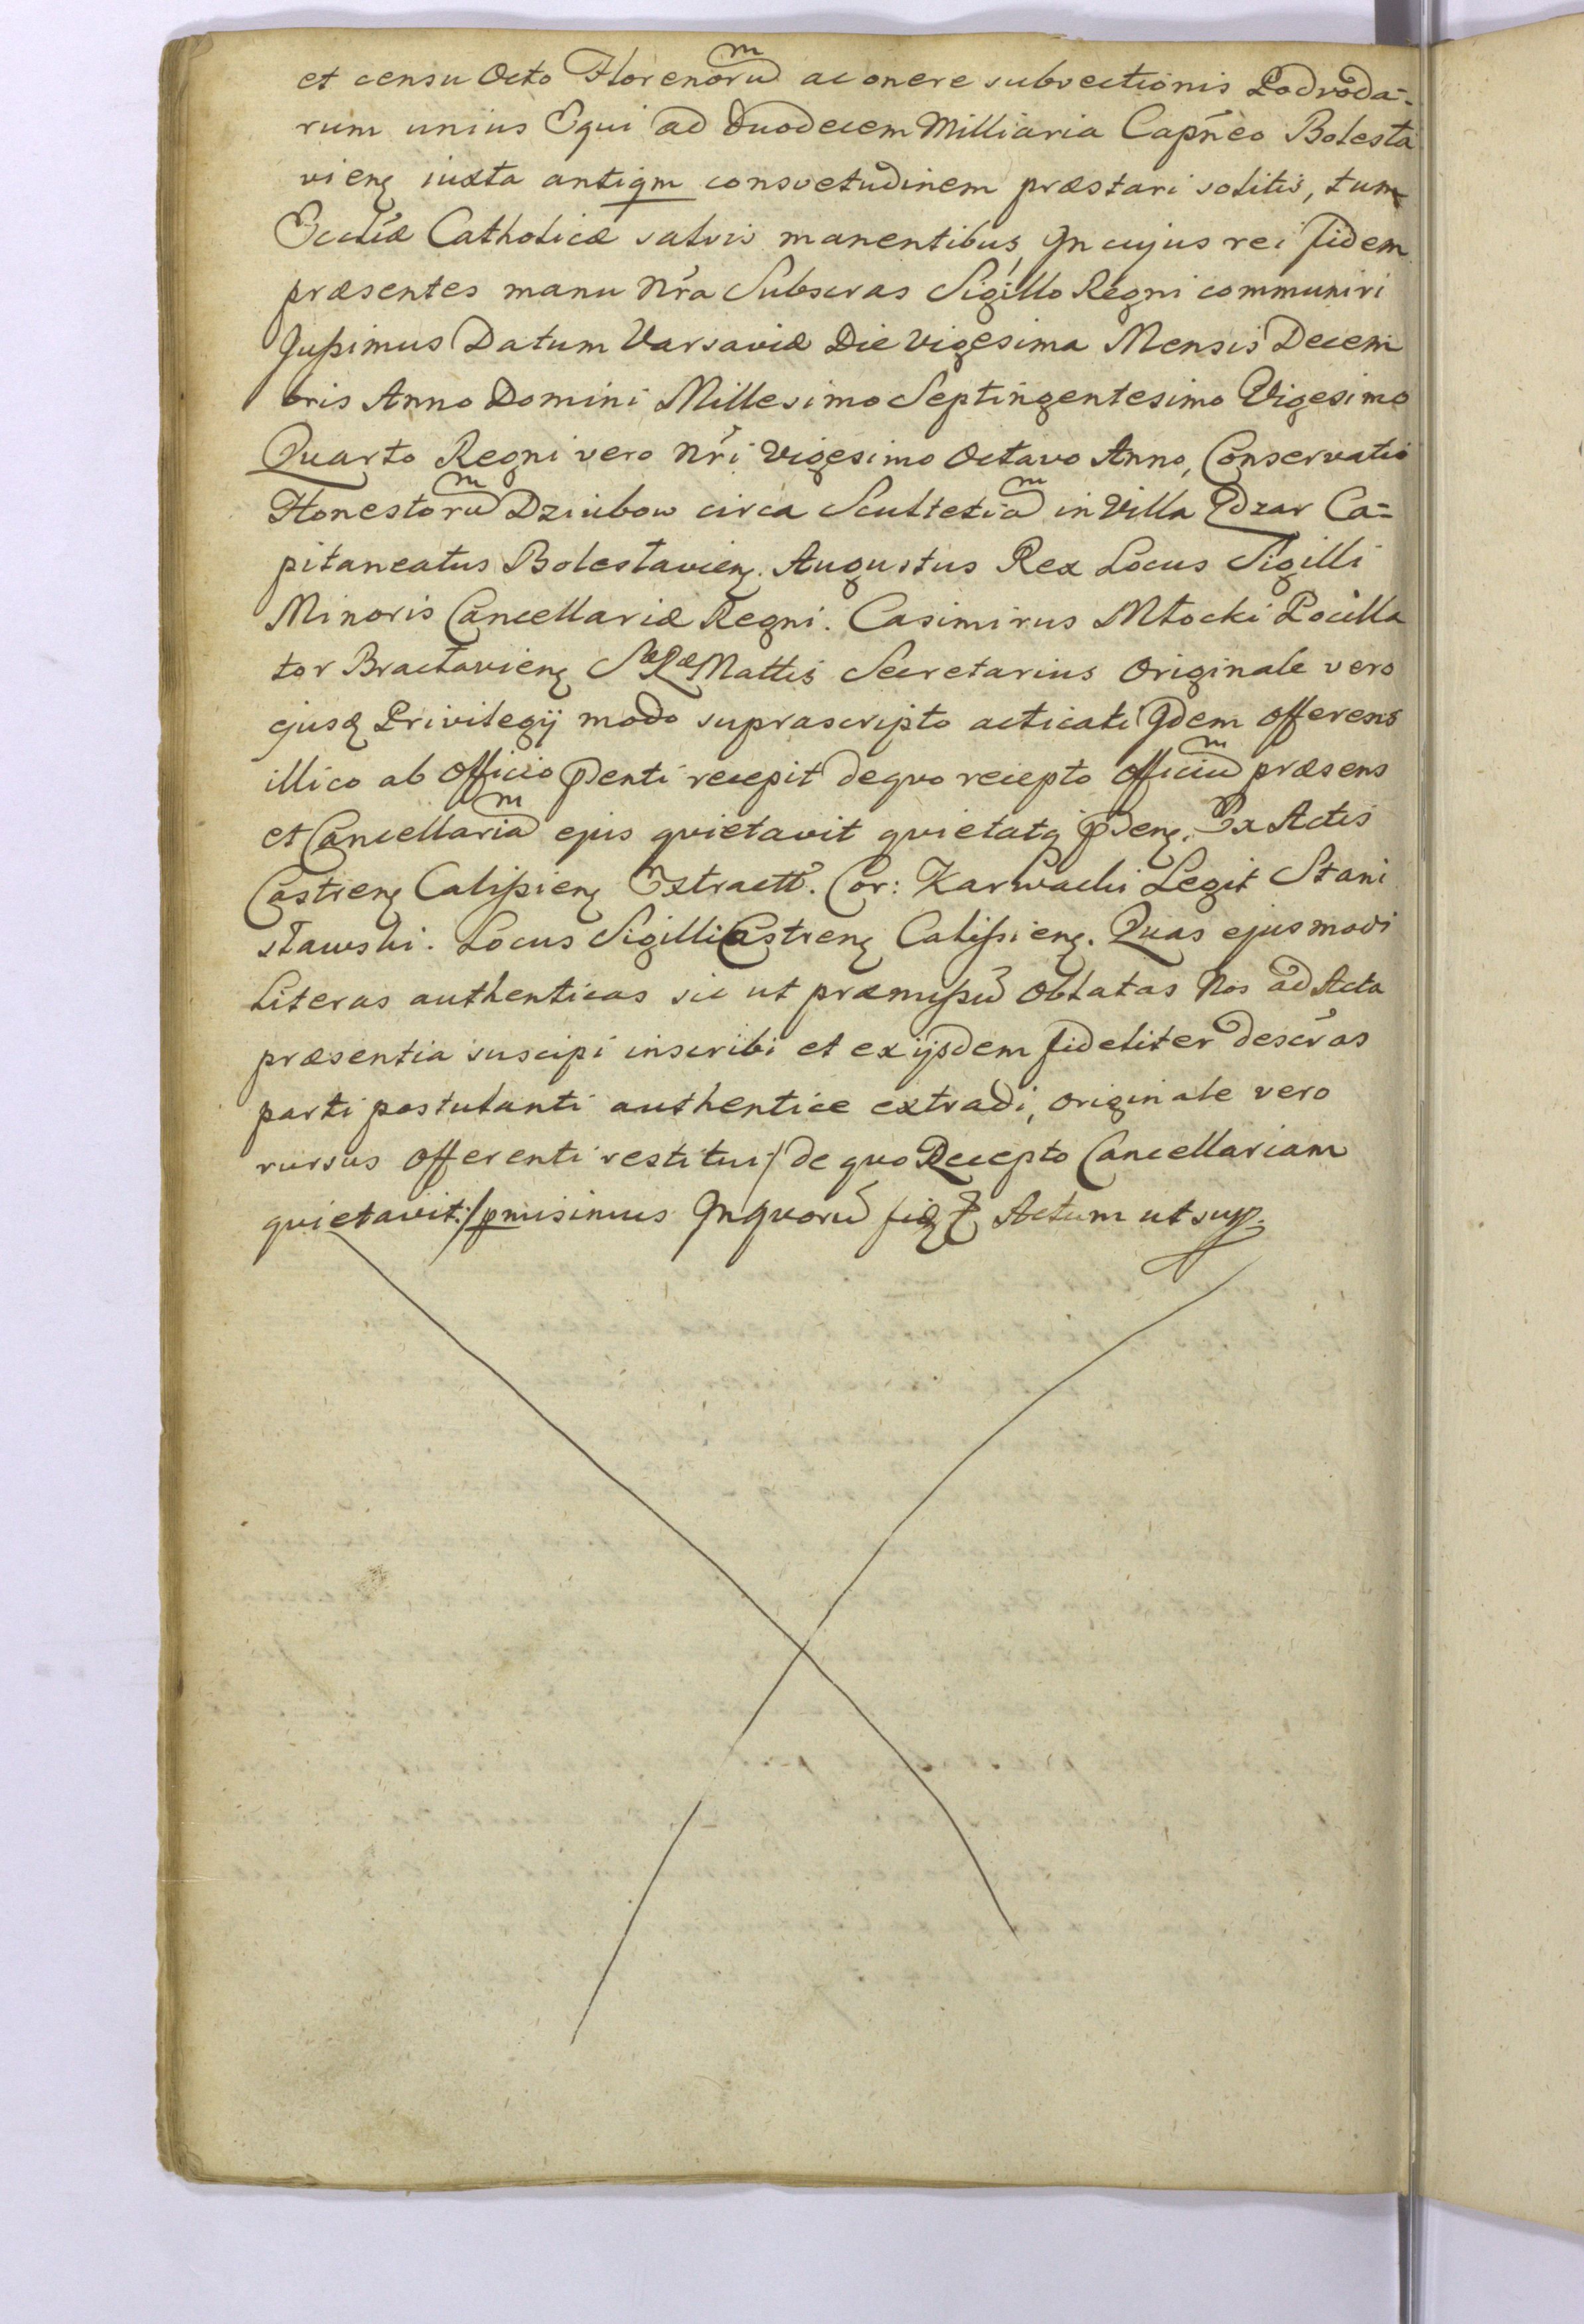 et censu Octo Florenorum ac onere subvectionis Podvoda=
rum unius Equi ad Duodecem Milliaria Capñeo Bolesła
vieñ iuxta antiqm consvetudinem præstari solitis, tum
Eccliæ Catholicæ salvis manentibus, In cujus rei fidem
præsentes manu Nr̃a Subscras Sigillo Regni communiri
Jussimus Datum Varsaviæ Die Vigesima Mensis Decem
bris Anno Domini Millesimo Septingentesimo Vigesimo
Quarto Regni vero Nr̃i Vigesimo Octavo Anno, Conservatio
Honestorum Dziubow circa Scultetiam in Villa Zdzar Ca=
pitaneatus Bolesłavieñ. Augustus Rex Locus Sigilli
Minoris Cancellariæ Regni. Casimirus Młocki Pocilla
tor Bracłavieñ SæRæMattis Secretarius Originale vero
ejusd Privilegij modo suprascripto acticati Idem Offerens
illico ab Officio pñenti recepit de quo recepto Officium præsens
et Cancellariam ejus qvietavit qvietatq pñeñ. Ex Actis
Castreñ Calissieñ Extractt. Cor: Karwacki Legit Stani
sławski. Locus Sigilli Castreñ Calissieñ. Quas ejusmodi
Literas authenticas sic ut præmissũ Oblatas Nos ad Acta
præsentia suscipi inscribi et ex ijsdem fideliter descr̃as
parti postulanti authentice extradi, originale vero
rursus Offerenti restitui / de qvo Recepto Cancellariam
qvietavit:/ pmisimus Inqvorũ fid Actum ut sup.